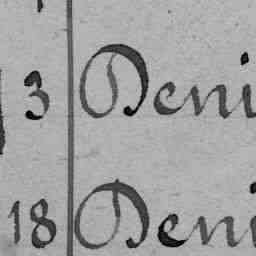 3 Deni
18 Deni